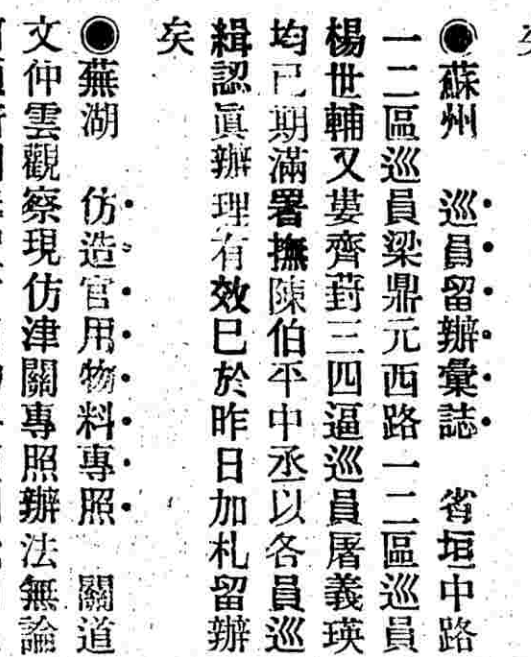 ◉蘇州　巡員留辦彙誌　省垣中路
一二區巡員梁鼎元西路一二區巡員
楊世輔又婁齊葑三四逼巡員屠義瑛
均已期滿署撫陳伯平中丞以各員巡
緝認眞辦理有效巳於昨日加札留辦
矣
◉蕪湖　仿造官用物料專照　關道
文仲雲觀察現仿津關專照辦法無論